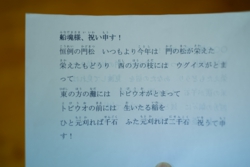 船魂様、祝い申す!
恒例の門松　いつもより今年は　門の松が栄えた
栄えたもどうり　西の方の枝には　ウグイスがとま
って
東の方の枝には　トビウオがとまって
トビウオの前には　生いたる稲を
ひと元刈れば千石　ふた元刈れば二千石　祝うて申
す!